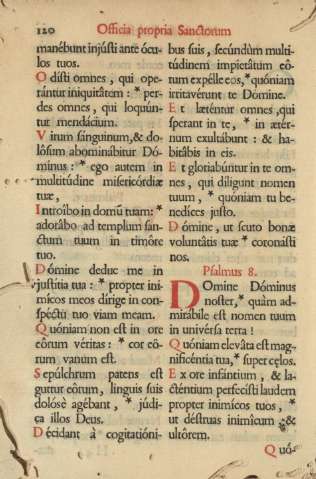 120
Officia propria Sanctorum
manébunt injústi ante ócu-
los tuos.
Odisti omnes, qui ope-
rántur iniquitátem : * per-
des omnes, qui loquún-
tur mendácium.
Virum sánguinum,& do-
lósum abominábitur Dó-
minus : * ego autem in
multitúdine misericórdiæ
tuæ,
Introíbo in domũ tuam: *
adorábo ad templum san-
ctum tuum in timóre
tuo.
Dómine deduc me in
justitia tua : * propter ini-
mícos meos dirige in con-
spéctu tuo viam meam.
Quóniam non est in ore
eórum véritas : * cor eó-
rum vanum est.
Sepúlchrum patens est
guttur eórum, linguis suis
dolósè agébant, * júdi-
ca illos Deus.
Décidant à cogitatióni-
bus suis, secúndùm multi-
túdinem impietátum eó-
rum expélle eos,* quóniam
irritavérunt te Dómine.
Et læténtur omnes ,qui
sperant in te, * in ætér-
num exultábunt : & ha-
bitábis in eis.
Et gloriabúntur in te om-
nes, qui díligunt nomen
tuum, * quóniam tu be-
nedíces justo.
Dómine, ut scuto bonæ
voluntátis tuæ * coronásti
nos.
Psalmus 8.
DOmine Dóminus
noster,* quàm ad-
mirábile est nomen tuum
in univérsa terra !
Quóniam eleváta est mag-
nificéntia tua,* super cęlos.
Ex ore infántium, & la-
cténtium perfecísti laudem
propter inimícos tuos, *
ut déstruas inimícum &
ultórem.
Quó-